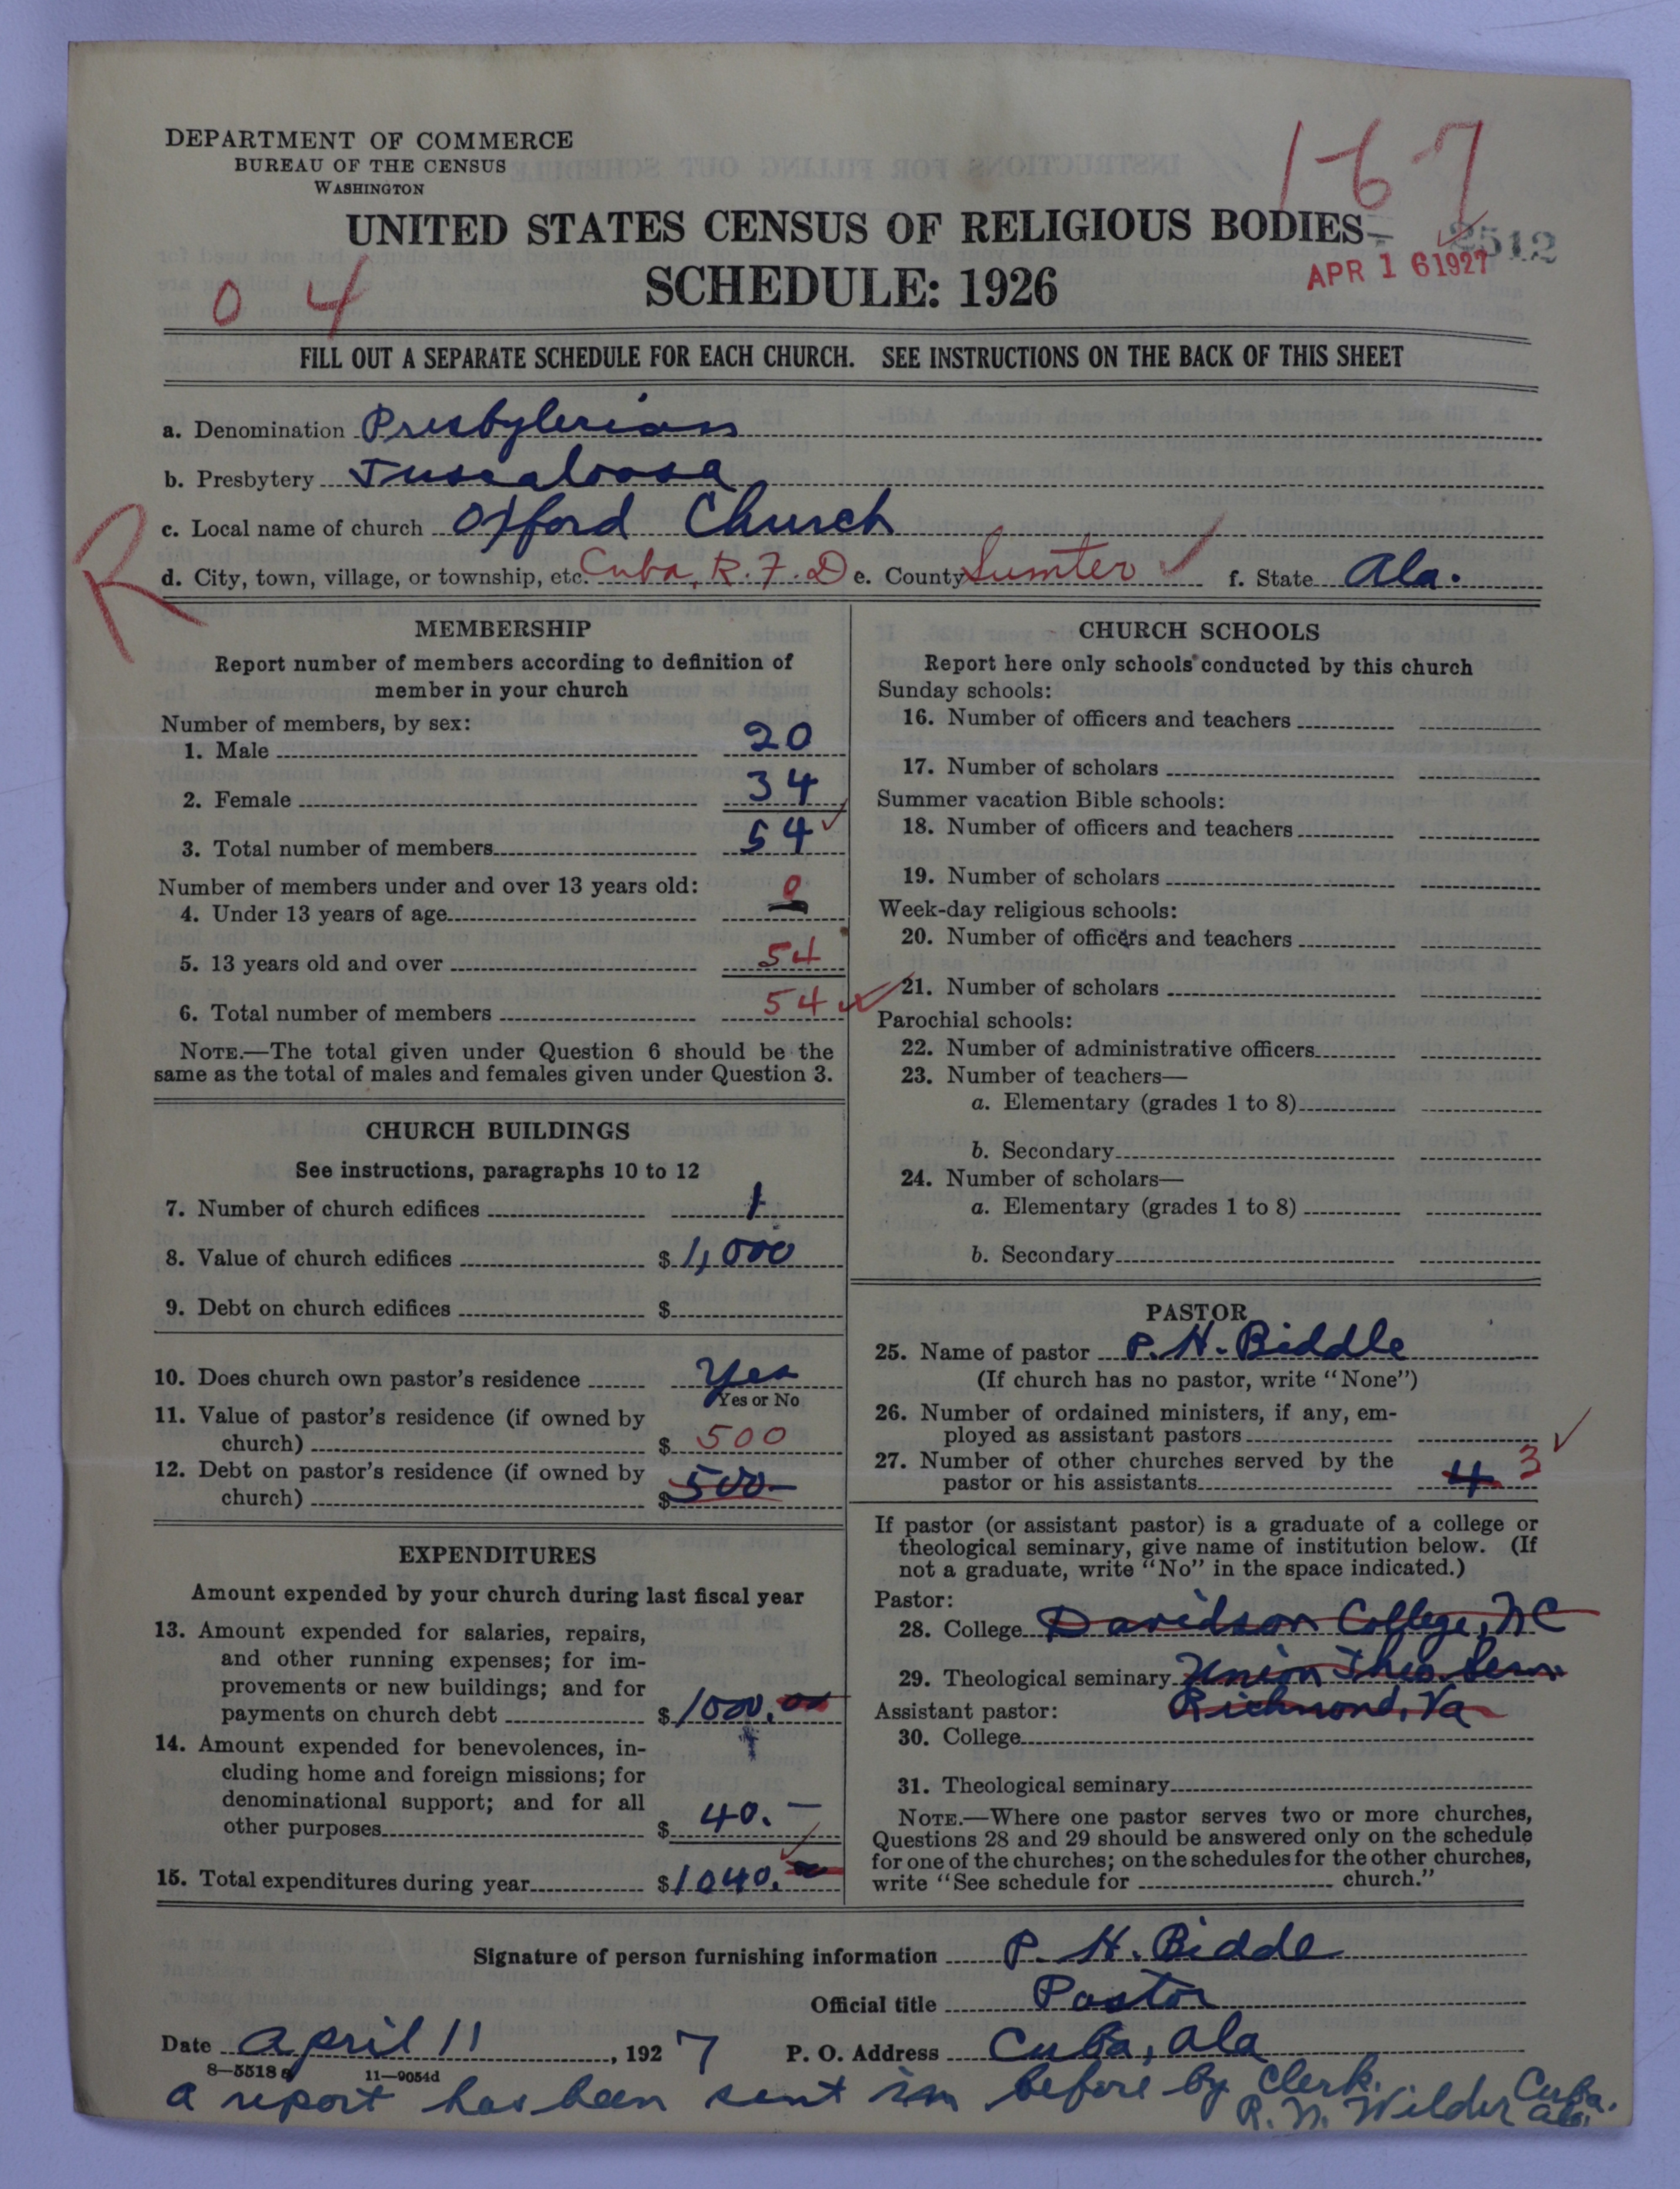 DEPARTMENT OF COMMERCE
BUREAU OF THE CENSUS
WASHINGTON
167
UNITED STATES CENSUS OF RELIGIOUS BODIES
2512
SCHEDULE: 1926
APR 16 1927
0 4
FILL OUT A SEPARATE SCHEDULE FOR EACH CHURCH. SEE INSTRUCTIONS ON THE BACK OF THIS SHEET
a. Denomination Presbyterian
b. Presbytery Tuscaloosa
c. Local name of church Oxford Church
R
d. City, town, village, or township, etc. Cuba, R.F.D e. County Sumter f. State Ala.
MEMBERSHIP
Report number of members according to definition of
member in your church
Number of members, by sex:
1. Male 20
2. Female 34
3. Total number of members 54
Number of members under and over 13 years old:
4. Under 13 years of age 0
5. 13 years old and over 54
6. Total number of members 54
NOTE.—The total given under Question 6 should be the
same as the total of males and females given under Question 3.
CHURCH BUILDINGS
See instructions, paragraphs 10 to 12
7. Number of church edifices 1
8. Value of church edifices $ 1,000
9. Debt on church edifices $
10. Does church own pastor's residence Yes
Yes or No
11. Value of pastor's residence (if owned by
church) $ 500
12. Debt on pastor's residence (if owned by
church) $ 500—
EXPENDITURES
Amount expended by your church during last fiscal year
13. Amount expended for salaries, repairs,
and other running expenses; for im-
provements or new buildings; and for
payments on church debt $ 1000.00
14. Amount expended for benevolences, in-
cluding home and foreign missions; for
denominational support; and for all
other purposes $ 40.—
15. Total expenditures during year $ 1040.
CHURCH SCHOOLS
Report here only schools conducted by this church
Sunday schools:
16. Number of officers and teachers
17. Number of scholars
Summer vacation Bible schools:
18. Number of officers and teachers
19. Number of scholars
Week-day religious schools:
20. Number of officers and teachers
21. Number of scholars
Parochial schools:
22. Number of administrative officers
23. Number of teachers—
a. Elementary (grades 1 to 8)
b. Secondary
24. Number of scholars—
a. Elementary (grades 1 to 8)
b. Secondary
PASTOR
25. Name of pastor P. H. Biddle
(If church has no pastor, write "None")
26. Number of ordained ministers, if any, em-
ployed as assistant pastors
27. Number of other churches served by the
pastor or his assistants 4 3
If pastor (or assistant pastor) is a graduate of a college or
theological seminary, give name of institution below. (If
not a graduate, write "No" in the space indicated.)
Pastor:
28. College Davidson College, N C
29. Theological seminary Union Theo. Sem.
Richmond, Va
Assistant pastor:
30. College
31. Theological seminary
NOTE.—Where one pastor serves two or more churches,
Questions 28 and 29 should be answered only on the schedule
for one of the churches; on the schedules for the other churches,
write "See schedule for church."
Signature of person furnishing information P. H. Biddle
Official title Pastor
Date April 11, 1927 P. O. Address Cuba, Ala
8—5518a 11—9054d
A report has been sent in before by Clerk.
R. N. Wilder Cuba. Ala.